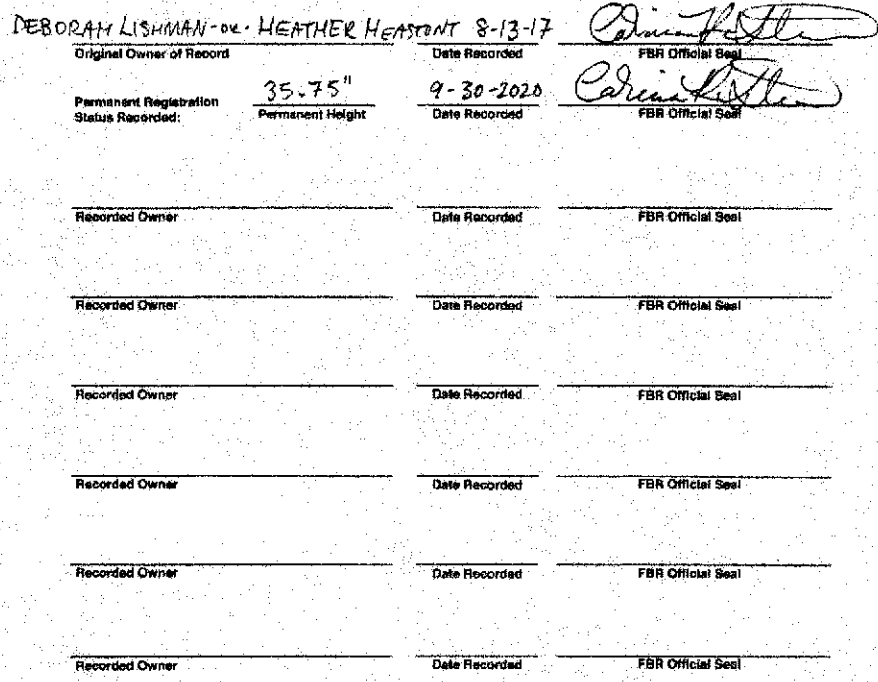 DEBORAH LISHMAN -OR- HEATHER HEASTONT 8-13-17
Original Owner of Record Date Recorded FBR Official Seal
Permanent Registration Status Recorded: 35.75" 9-30-2020
Permanent Height Date Recorded FBR Official Seal
Recorded Owner Date Recorded FBR Official Seal
Recorded Owner Date Recorded FBR Official Seal
Recorded Owner Date Recorded FBR Official Seal
Recorded Owner Date Recorded FBR Official Seal
Recorded Owner Date Recorded FBR Official Seal
Recorded Owner Date Recorded FBR Official Seal